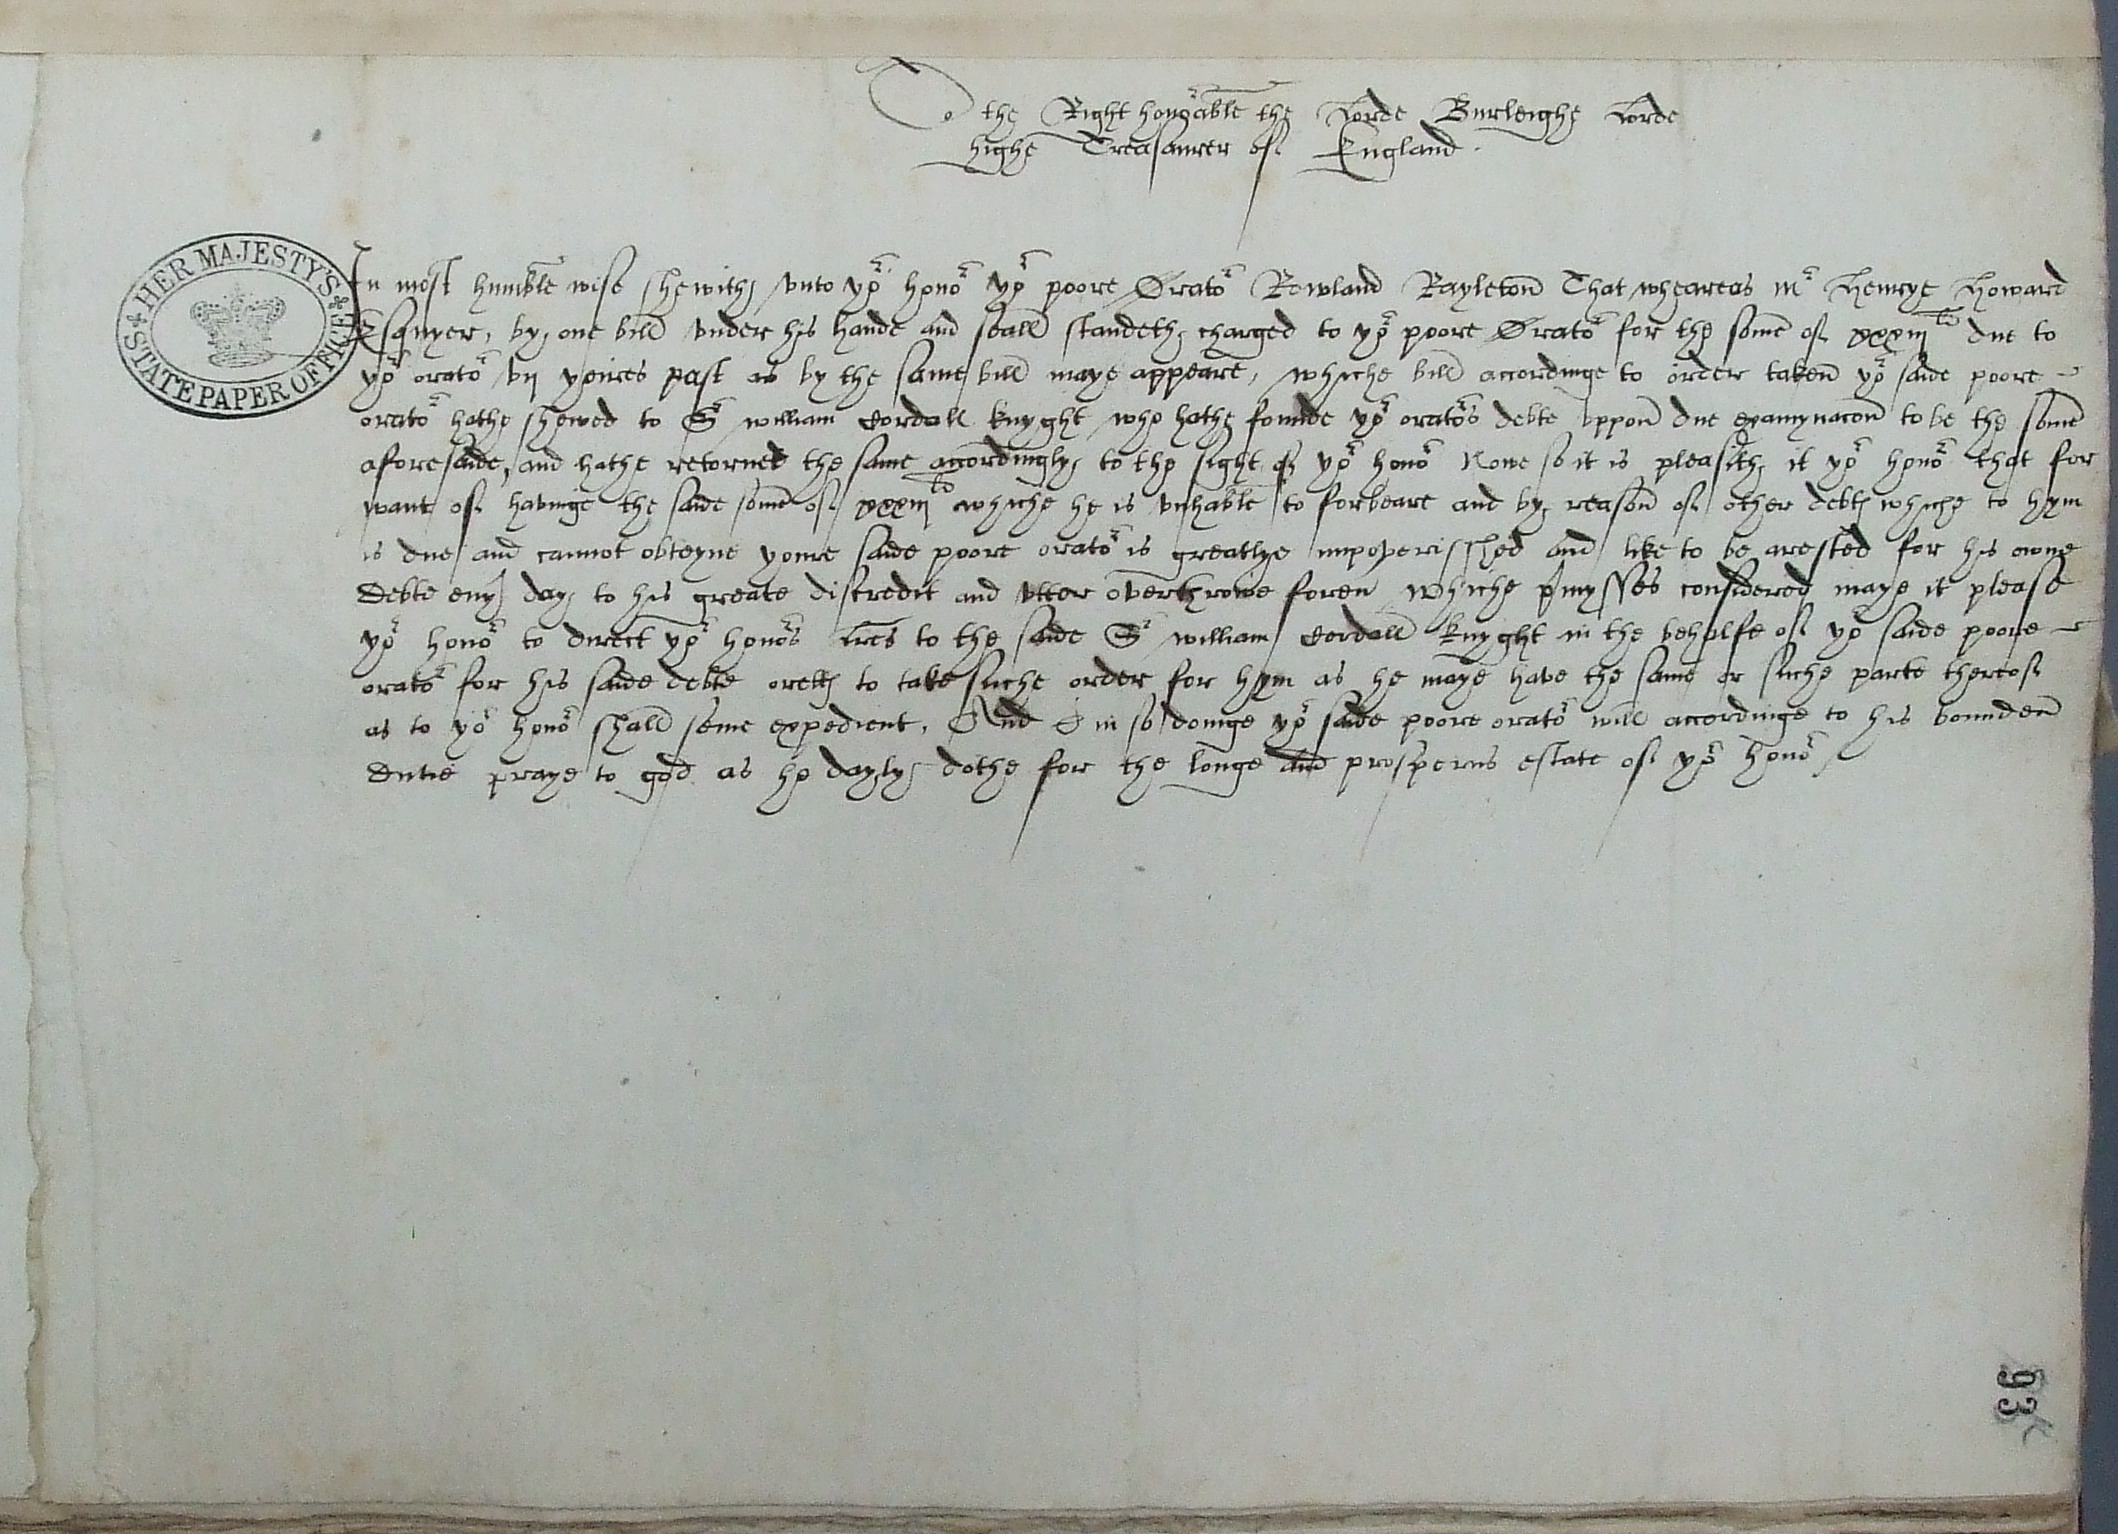 To the Right hono^r^able the Lorde Burleighe Lorde
highe Treasaurer of England.
HER MAJESTY'S STATE PAPER OFFICE
In most humble wise shewith vnto yo^r^ hono^r^ yo^r^ poore Orato^r^ Rowland Rayleton That wheareas m^r^ Henrye Howard
Esquyer, by one bill vnder his hande and seall standeth charged to yo^r^ poore Orato^r^ for the some of xxxiij^li^ due to
yo^r^ orato^r^ vij yeires past as by the same bill maye appeare, whiche bill accordinge to order taken yo^r^ saide poore
orato^r^ hathe shewed to S^r^ william Cordall knyght who hathe founde yo^r^ orato^r^s debte vppon due examynacon to be the some
aforesaide, and hathe retorned the same accordingly to the sight of yo^r^ hono^r^ Nowe so it is pleasith it yo^r^ hono^r^ that for
want of havinge the saide some of xxxiij^li^ whiche he is vnhable to forbeare and by reason of other debtes whiche to hym
is due and cannot obteyne youre saide poore orato^r^ is greatlye impoverisshed and like to be arested for his owne
debte eny day to his greate discredit and vtter overthrowe forever whiche p̱mysses considered maye it please
yo^r^ hono^r^ to direct yo^r^ hono^r^s lres to the saide S^r^ william Cordall knyght in the behalfe of yo^r^ saide poore
orato^r^ for his saide debte orells to take suche order for hym as he maye have the same or suche parte thereof
as to yo^r^ hono^r^ shall seme expedient, And in so doinge yo^r^ saide poore orato^r^ will accordinge to his bounden
dutie praye to god as he dayly dothe for the longe and prosperus estate of yo^r^ hono^r^
93